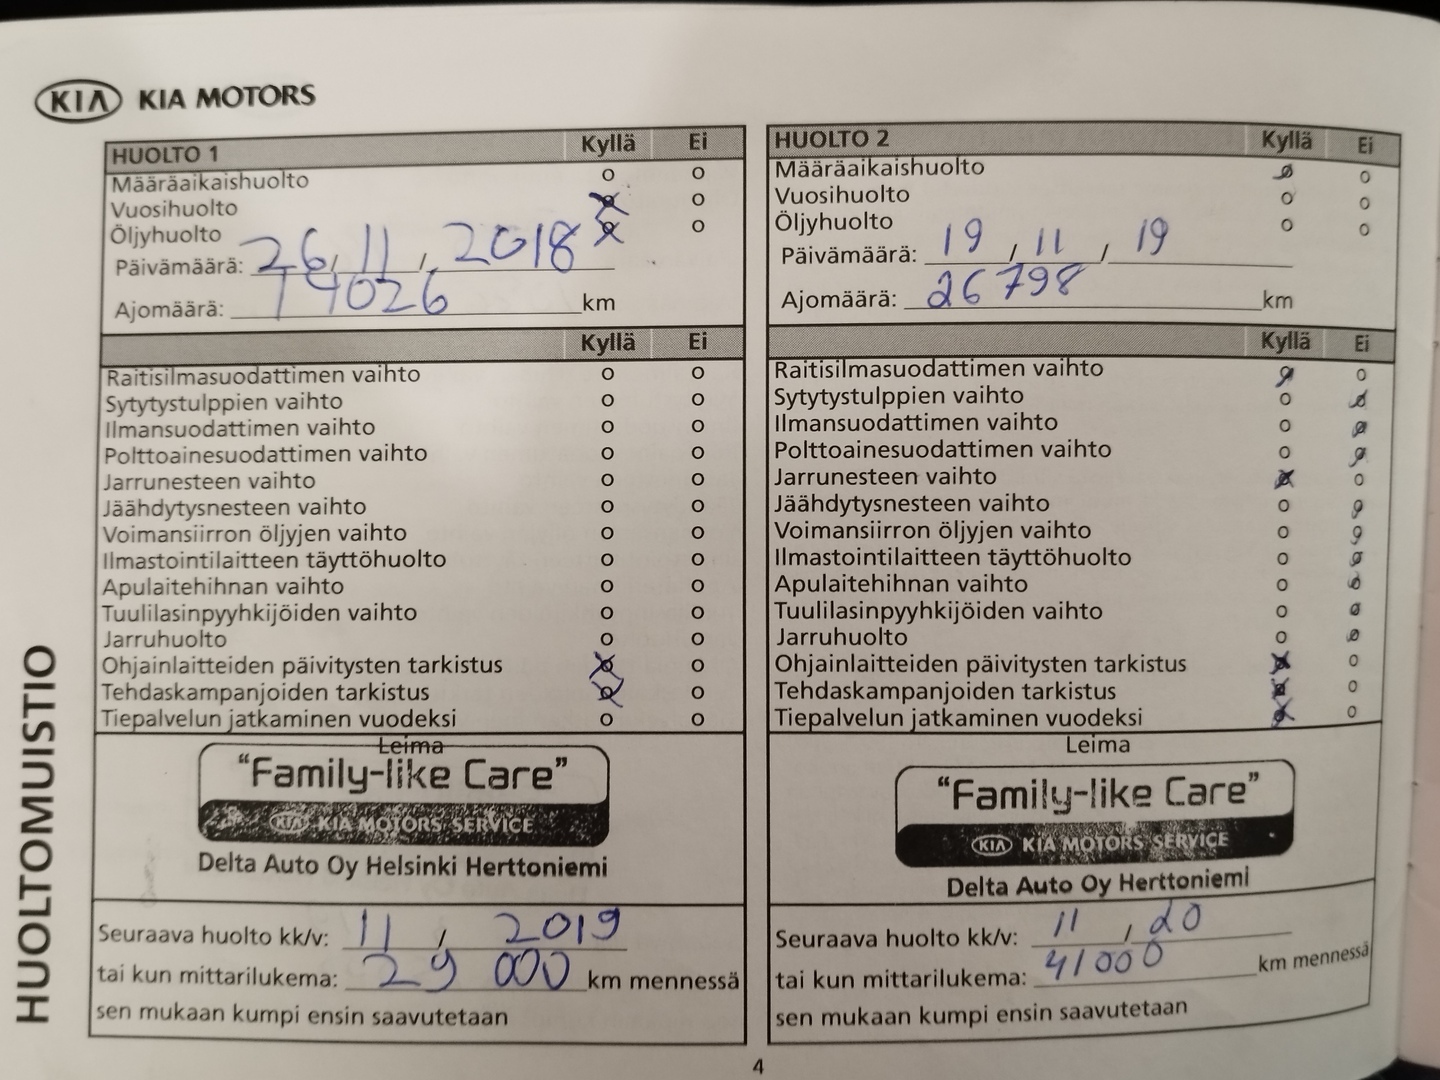 KIA KIA MOTORS
HUOLTOMUISTIO
HUOLTO 1 Kyllä Ei
Määräaikaishuolto o o
Vuosihuolto o o
Öljyhuolto o o
Päivämäärä: 26 / 11 / 2018
Ajomäärä: 14026 km
Kyllä Ei
Raitisilmasuodattimen vaihto o o
Sytytystulppien vaihto o o
Ilmansuodattimen vaihto o o
Polttoainesuodattimen vaihto o o
Jarrunesteen vaihto o o
Jäähdytysnesteen vaihto o o
Voimansiirron öljyjen vaihto o o
Ilmastointilaitteen täyttöhuolto o o
Apulaitehihnan vaihto o o
Tuulilasinpyyhkijöiden vaihto o o
Jarruhuolto o o
Ohjainlaitteiden päivitysten tarkistus o o
Tehdaskampanjoiden tarkistus o o
Tiepalvelun jatkaminen vuodeksi o o
Leima
"Family-like Care"
KIA KIA MOTORS SERVICE
Delta Auto Oy Helsinki Herttoniemi
Seuraava huolto kk/v: 11 / 2019
tai kun mittarilukema: 29 000 km mennessä
sen mukaan kumpi ensin saavutetaan
HUOLTO 2 Kyllä Ei
Määräaikaishuolto o o
Vuosihuolto o o
Öljyhuolto o o
Päivämäärä: 19 / 11 / 19
Ajomäärä: 26798 km
Kyllä Ei
Raitisilmasuodattimen vaihto o o
Sytytystulppien vaihto o o
Ilmansuodattimen vaihto o o
Polttoainesuodattimen vaihto o o
Jarrunesteen vaihto o o
Jäähdytysnesteen vaihto o o
Voimansiirron öljyjen vaihto o o
Ilmastointilaitteen täyttöhuolto o o
Apulaitehihnan vaihto o o
Tuulilasinpyyhkijöiden vaihto o o
Jarruhuolto o o
Ohjainlaitteiden päivitysten tarkistus o o
Tehdaskampanjoiden tarkistus o o
Tiepalvelun jatkaminen vuodeksi o o
Leima
"Family-like Care"
KIA KIA MOTORS SERVICE
Delta Auto Oy Herttoniemi
Seuraava huolto kk/v: 11 / 20
tai kun mittarilukema: 41000 km mennessä
sen mukaan kumpi ensin saavutetaan
4